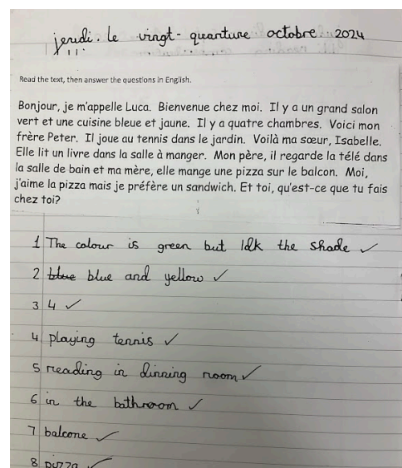 jeudi. le vingt-quanture octobre 2024
Read the text, then answer the questions in English.
Bonjour, je m'appelle Luca. Bienvenue chez moi. Il y a un grand salon
vert et une cuisine bleue et jaune. Il y a quatre chambres. Voici mon
frère Peter. Il joue au tennis dans le jardin. Voilà ma sœur, Isabelle.
Elle lit un livre dans la salle à manger. Mon père, il regarde la télé dans
la salle de bain et ma mère, elle mange une pizza sur le balcon. Moi,
j'aime la pizza mais je préfère un sandwich. Et toi, qu'est-ce que tu fais
chez toi?
1 The colour is green but Idk the shade ✓
2 blue blue and yellow ✓
3 4 ✓
4 playing tennis ✓
5 reading in dinning room ✓
6 in the bathroom ✓
7 balcone ✓
8 pizza ✓